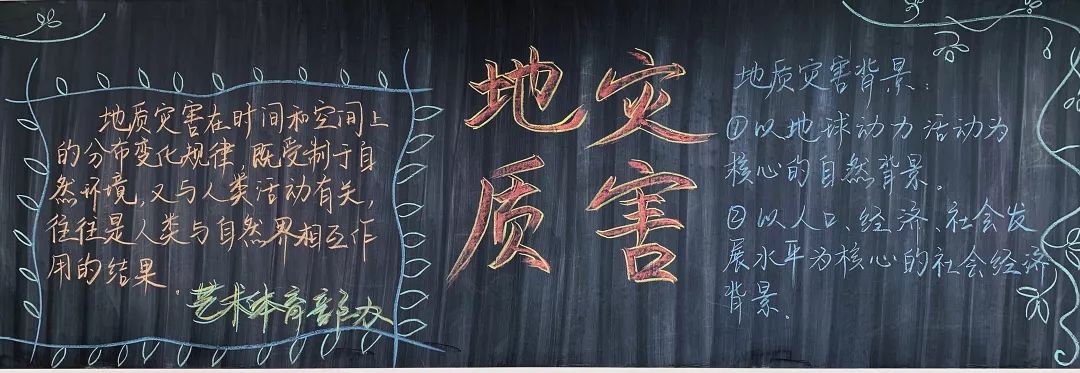 地质灾害在时间和空间上
的分布变化规律，既受制于自
然环境，又与人类活动有关，
往往是人类与自然界相互作
用的结果．
艺术体育部办
地灾
质害
地质灾害背景：
①以地球动力活动为
核心的自然背景。
②以人口、经济、社会发
展水平为核心的社会经济
背景．